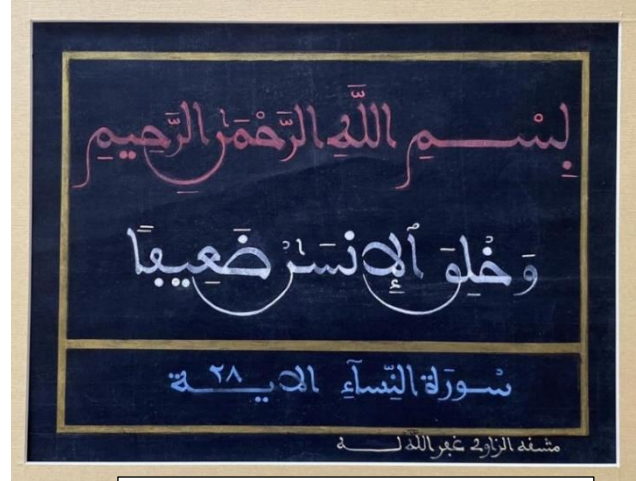 بِسْــمِ اللَّهِ الرَّحْمَٰنِ الرَّحِيمِ
وَخُلِقَ الْإِنسَٰنُ ضَعِيفًا
سُورَةُ النِّسَآءِ الايــة ٢٨
الزاوي غفر الله لــه